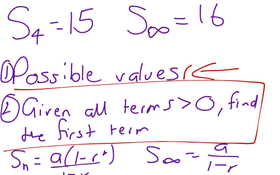 S₄=15 S∞=16
① Possible values r ←
② Given all terms > 0, find
the first term
Sₙ = a(1-rⁿ) S∞ = a/1-r